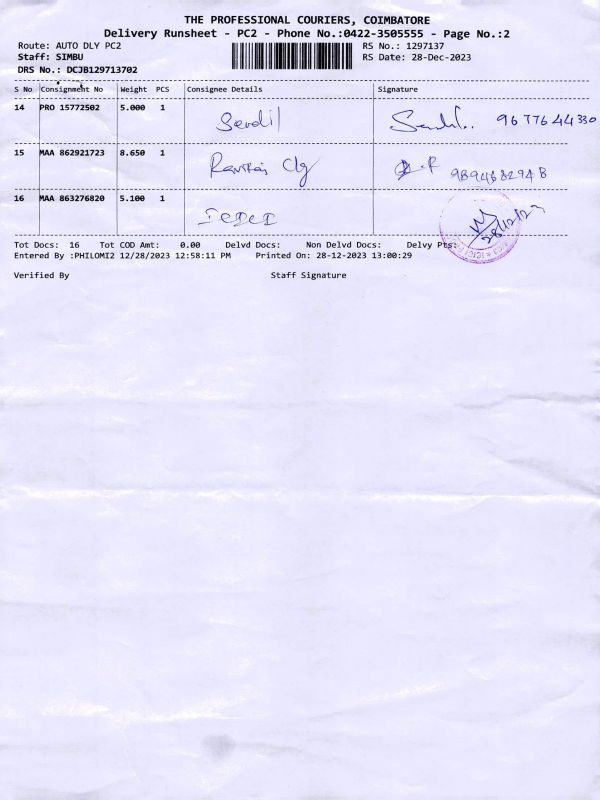 THE PROFESSIONAL COURIERS, COIMBATORE
Delivery Runsheet - PC2 - Phone No.:0422-3505555 - Page No.:2
Route: AUTO DLY PC2 RS No.: 1297137
Staff: SIMBU RS Date: 28-Dec-2023
DRS No.: DCJB129713702
S No Consignment No Weight PCS Consignee Details Signature
14 PRO 15772502 5.000 1 9677644330
15 MAA 862921723 8.650 1
16 MAA 863276820 5.100 1 ICICI
28/12/23
Tot Docs: 16 Tot COD Amt: 0.00 Delvd Docs: Non Delvd Docs: Delvy Pts:
Entered By :PHILOMI2 12/28/2023 12:58:11 PM Printed On: 28-12-2023 13:00:29
Verified By Staff Signature